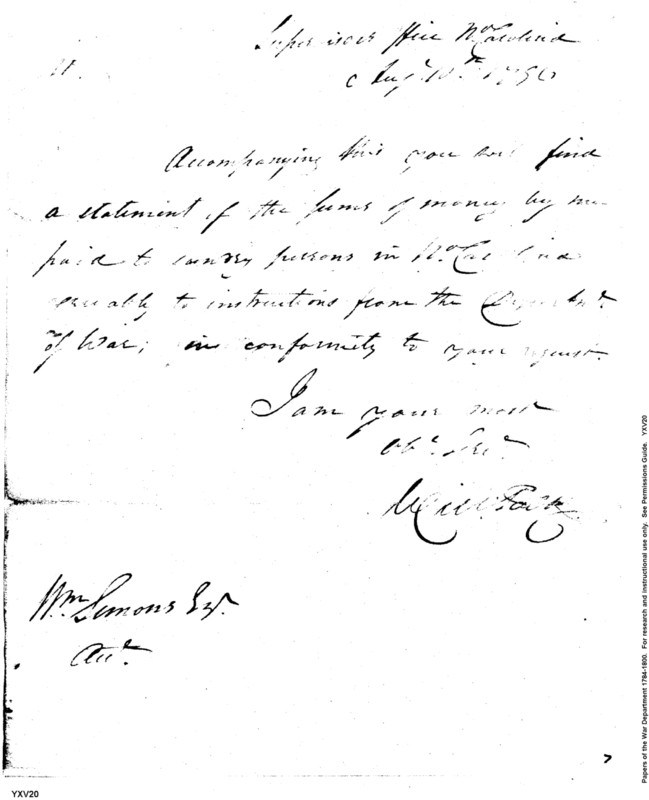 Supervisors Office No Carolina
Augt 10th 1796
Sir.
Accompanying this you will find
a statement of the sums of money by me
paid to sundry persons in No Carolina
agreeably to instructions from the Departmt
of War; in conformity to your request.
I am your most
Obt Servt
Will Polk
Wm Simons Esqr
Acct
YXV20
Papers of the War Department 1784-1800. For research and instructional use only. See Permissions Guide. YXV20